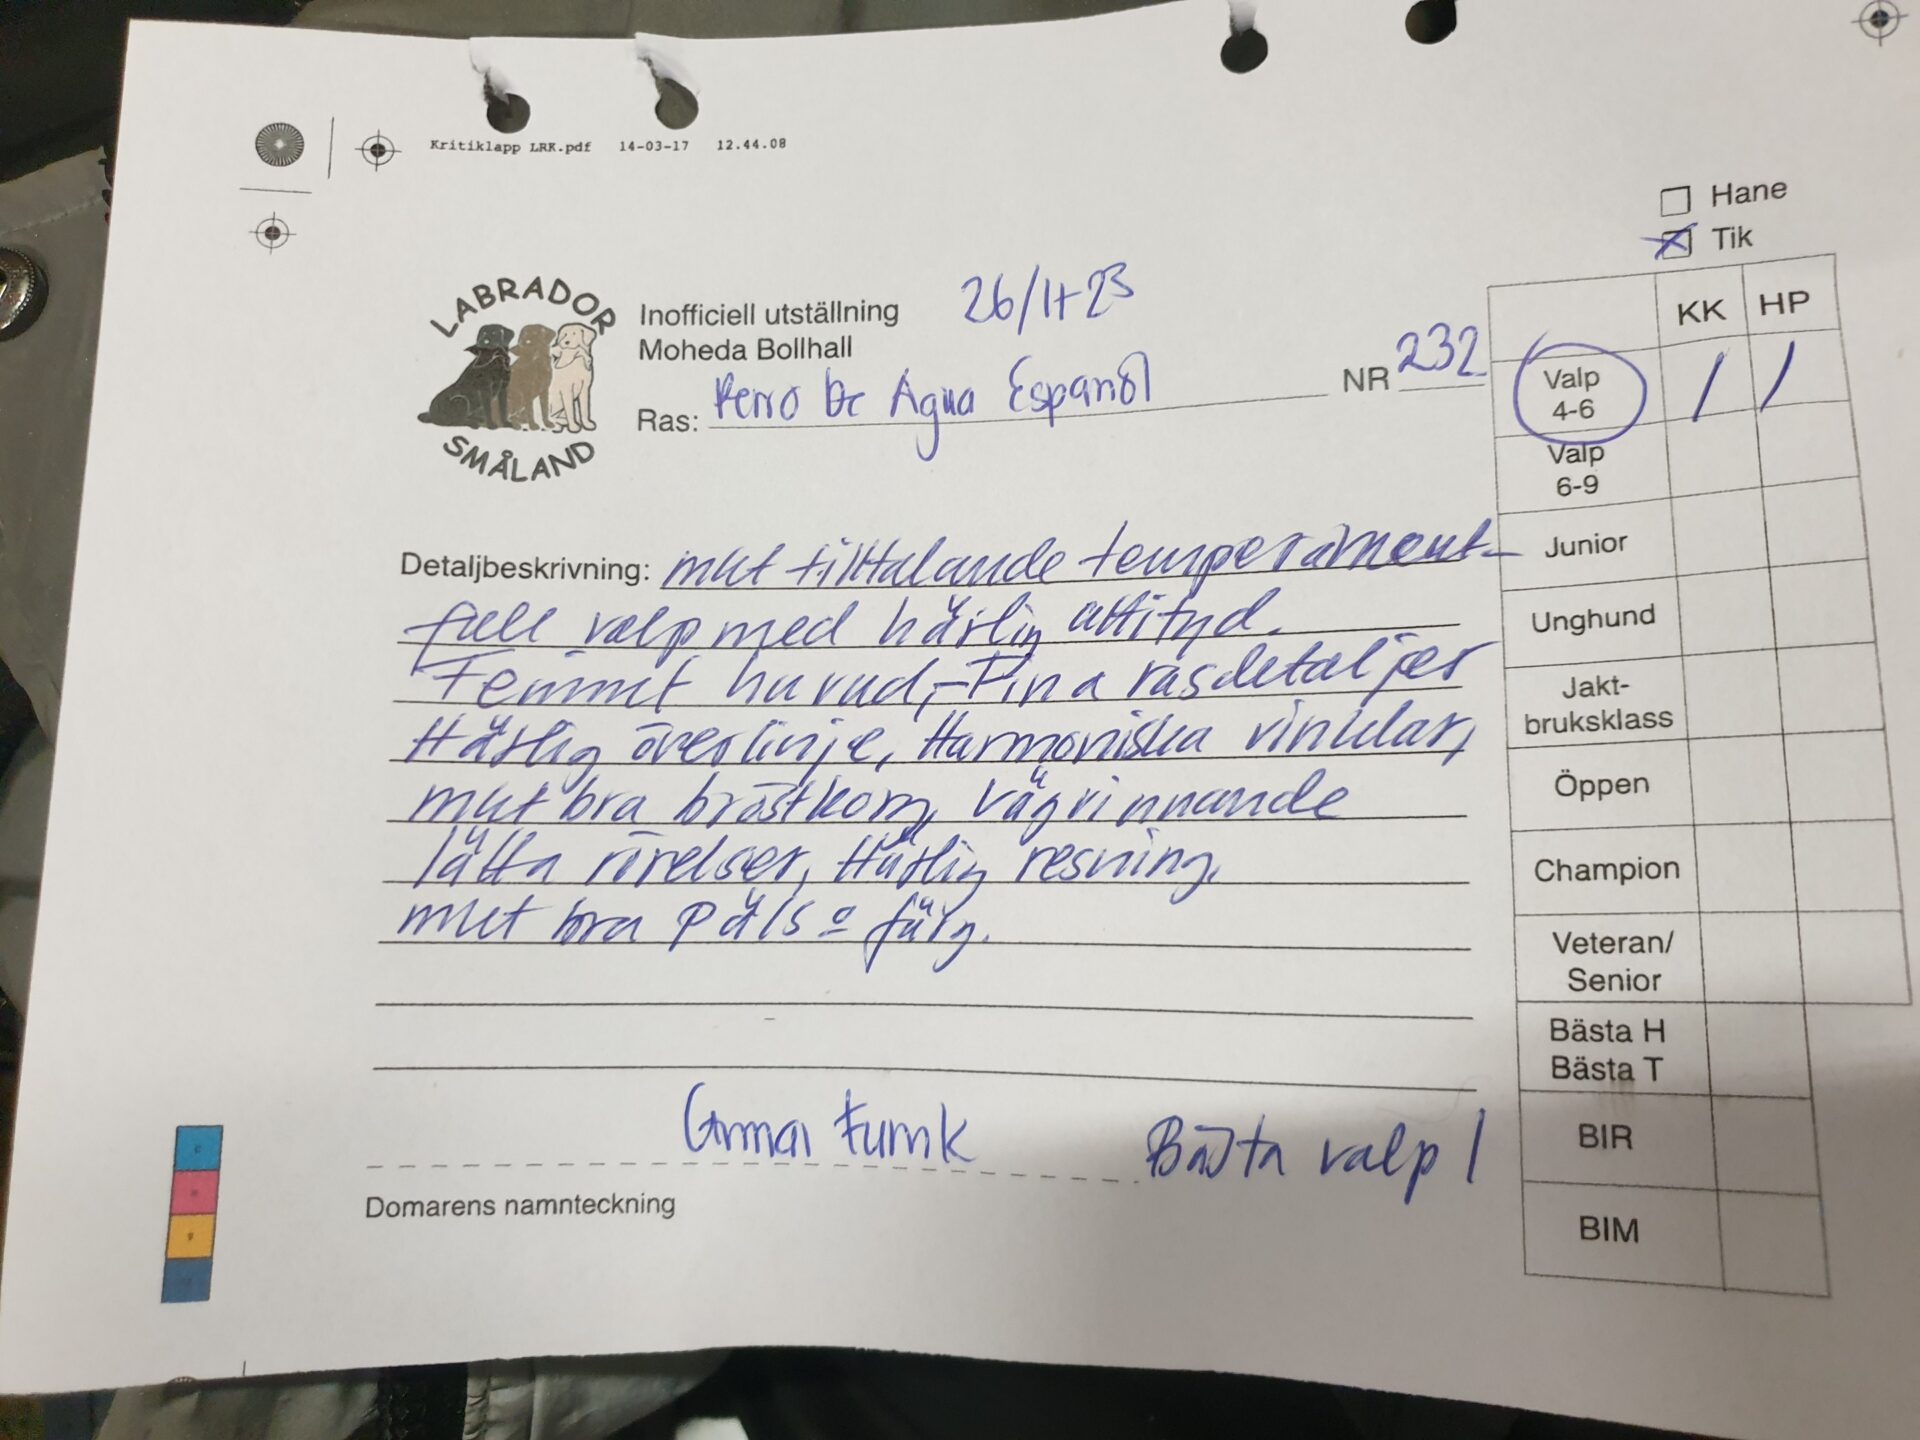 Kritiklapp LRK.pdf 14-03-17 12.44.08
Hane
Tik
LABRADOR
SMÅLAND
Inofficiell utställning 26/11-23
Moheda Bollhall
Ras: Perro De Agua Español
NR 232
KK HP
Valp 4-6 1 1
Valp 6-9
Junior
Unghund
Jakt-
bruksklass
Öppen
Champion
Veteran/
Senior
Bästa H
Bästa T
BIR
BIM
Detaljbeskrivning: mkt tilltalande temperament-
full valp med härlig attityd.
Feminint huvud, Fina rasdetaljer
Härlig överlinje, Harmoniska vinklar,
mkt bra bröstkorg, vägvinnande
lätta rörelser, Härlig resning,
mkt bra päls o färg.
Funck
Bästa valp 1
Domarens namnteckning